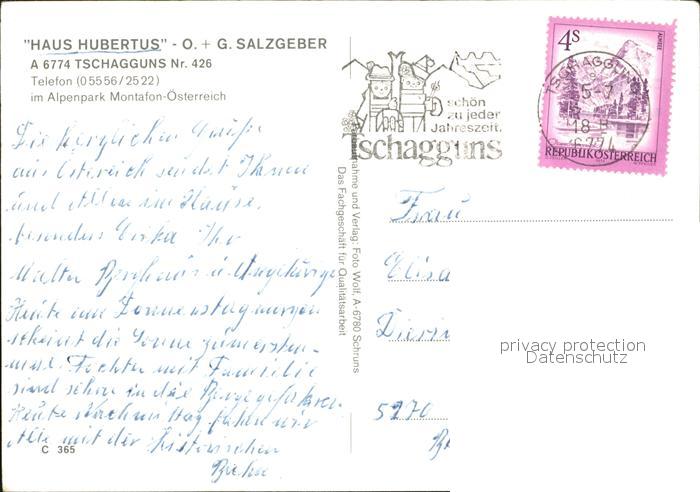 "HAUS HUBERTUS" - O. + G. SALZGEBER
A 6774 TSCHAGGUNS Nr. 426
Telefon (0 55 56 / 25 22)
im Alpenpark Montafon-Österreich
Die herzlichen Grüße
aus Östereich sendet Ihnen
und Allen im Hause,
besonders Erika Ihr
Walter Berghaus u. Angehörige
Heute am Donnerstagmorgen
scheint die Sonne zum ersten-
mal. Tochter mit Familie
sind schon in die Berge gefahren
Heute Nachmittag fahren wir
Alle mit der historischen
Bahn.
C 365
Aufnahme und Verlag: Foto Wolf, A-6780 Schruns
Das Fachgeschäft für Qualitätsarbeit
schön
zu jeder
Jahreszeit.
tschagguns
4S
ALMSEE
TSCHAGGUNS
18
6774
REPUBLIK ÖSTERREICH
Frau
Elisa
5270
privacy protection
Datenschutz